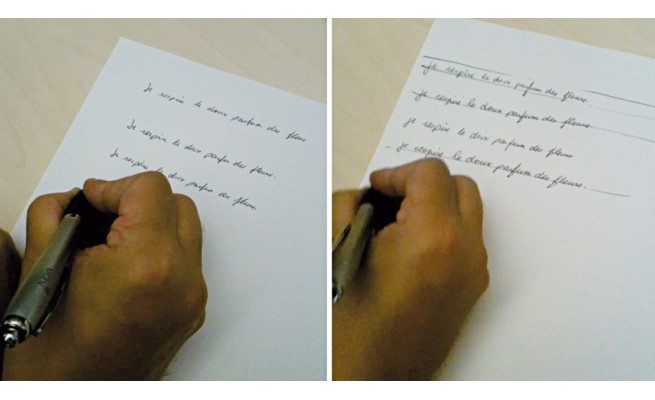 Je respire le doux parfum des fleurs
Je respire le doux parfum des fleurs.
Je respire le doux parfum des fleurs.
je respire le doux parfum des fleurs.
Je respire le doux parfum des fleurs.
je respire le doux parfum des fleurs
je respire le doux parfum des fleurs.